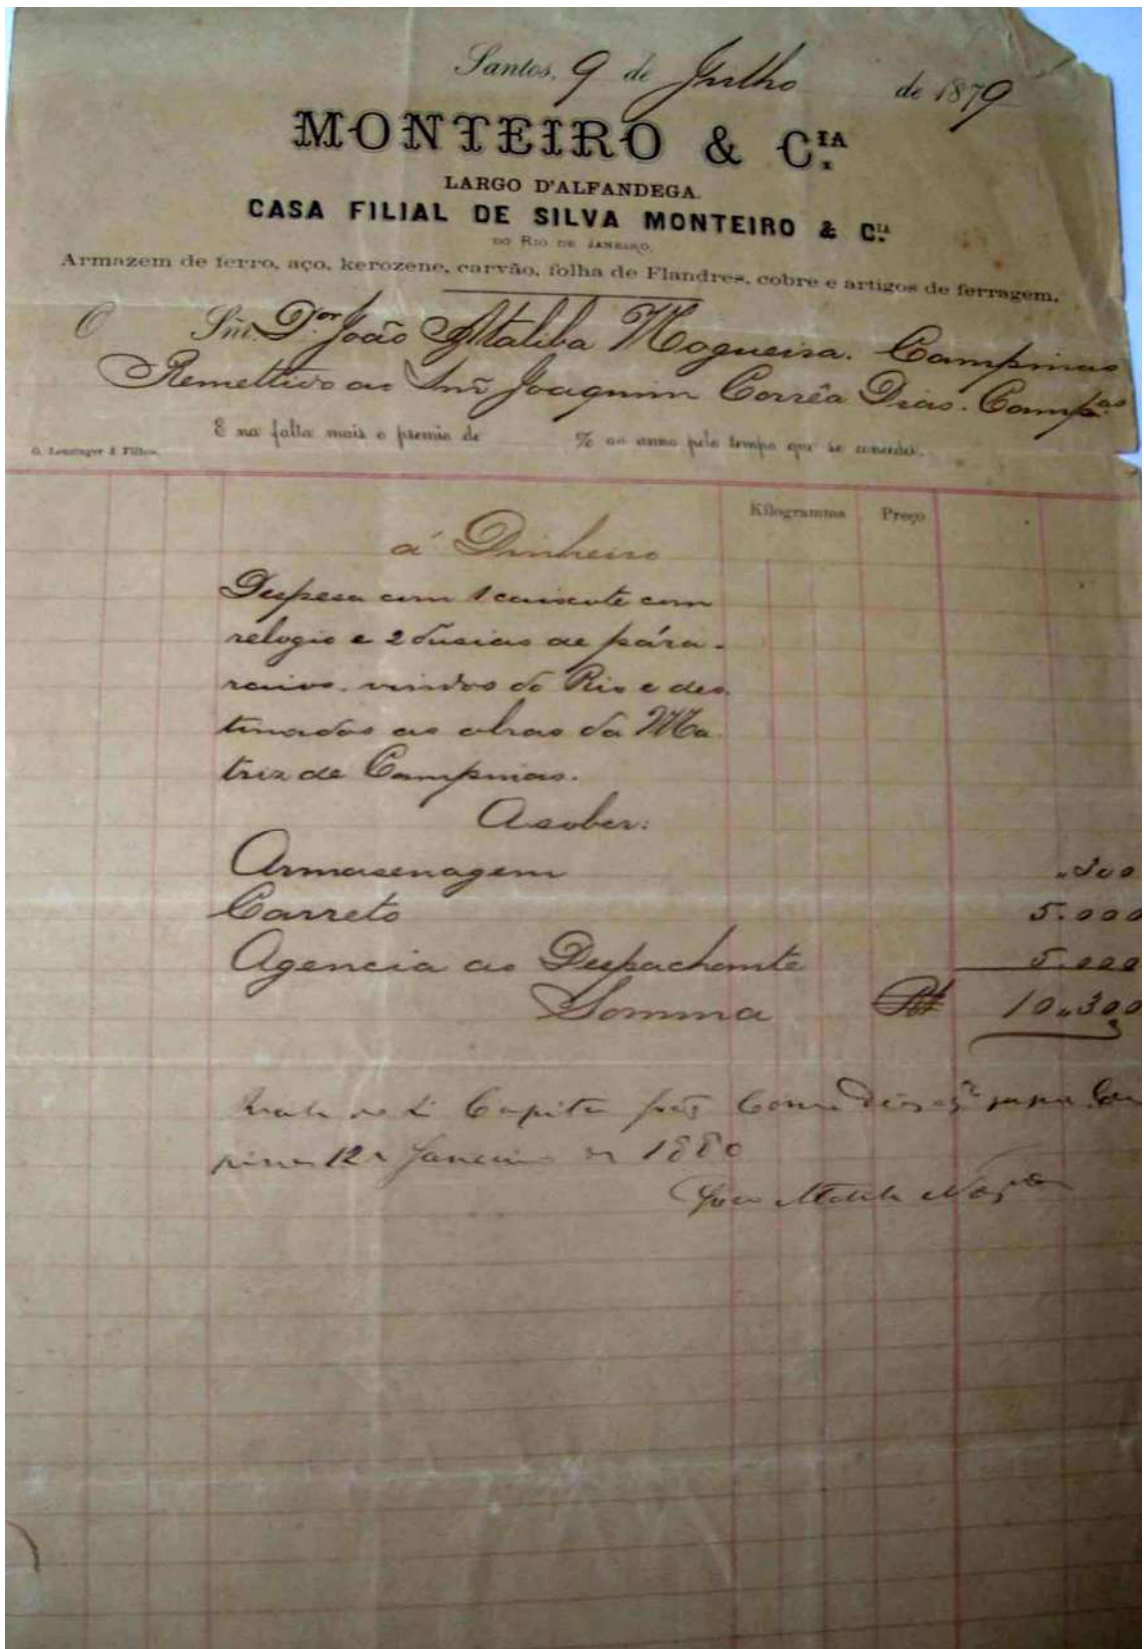 Santos, 9 de Julho de 1879
MONTEIRO & C.IA
LARGO D'ALFANDEGA.
CASA FILIAL DE SILVA MONTEIRO & C.IA
DO RIO DE JANEIRO.
Armazem de ferro, aço, kerozene, carvão, folha de Flandres, cobre e artigos de ferragem.
O Snr. Dor João Ataliba Nogueira. Campinas
Remettido ao Snr Joaquim Corrêa Dias. Camp.as
E na falta mais o premio de % ao anno pelo tempo que se conceder.
G. Leuzinger & Filhos.
Kilogramma Preço
á Dinheiro
Despesa com 1 caixote com
relogio e 2 dusias de pára-
raios vindos do Rio e des
tinados as obras da Ma
triz de Campinas.
A saber:
Armasenagem .300
Carreto 5.000
Agencia ao Despachante 5.000
Somma R$ 10.300
Capita
12 Janeiro 1880
João Ataliba